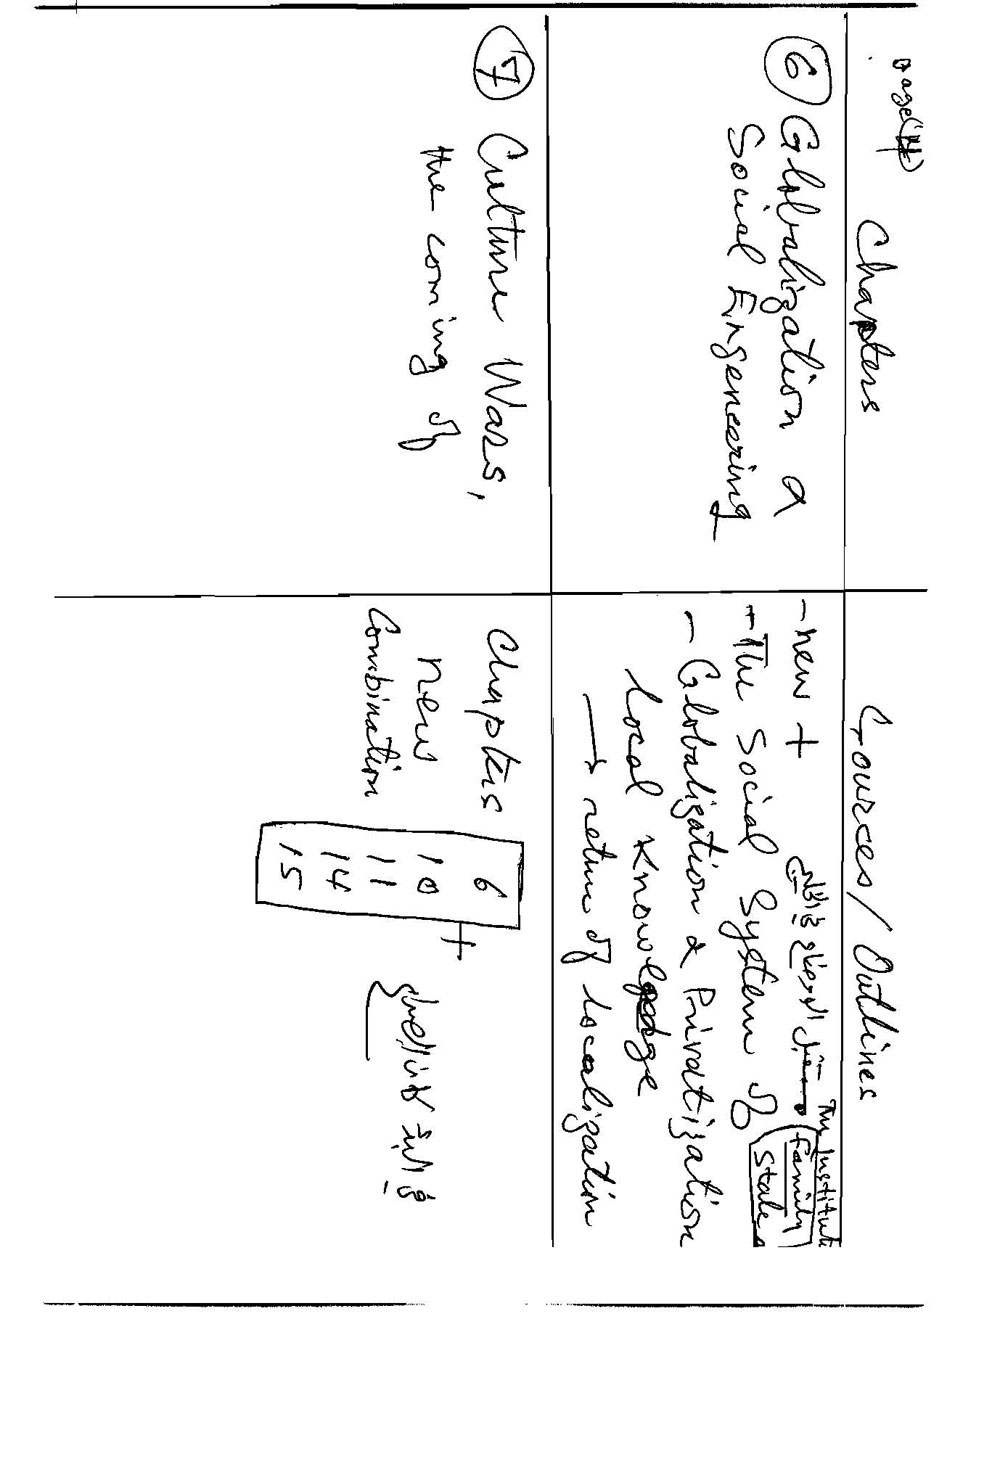 page (4)
Chapters
Sources/Outlines
6 Globalization &
Social Engeneering
- new +
The Institute
family
state
- The Social System of
- Globalization & Privatization
Local Knowledge
→ return of localization
7 Culture Wars,
the coming of
Chapters
new
Combination
6
10
11
14
15
+